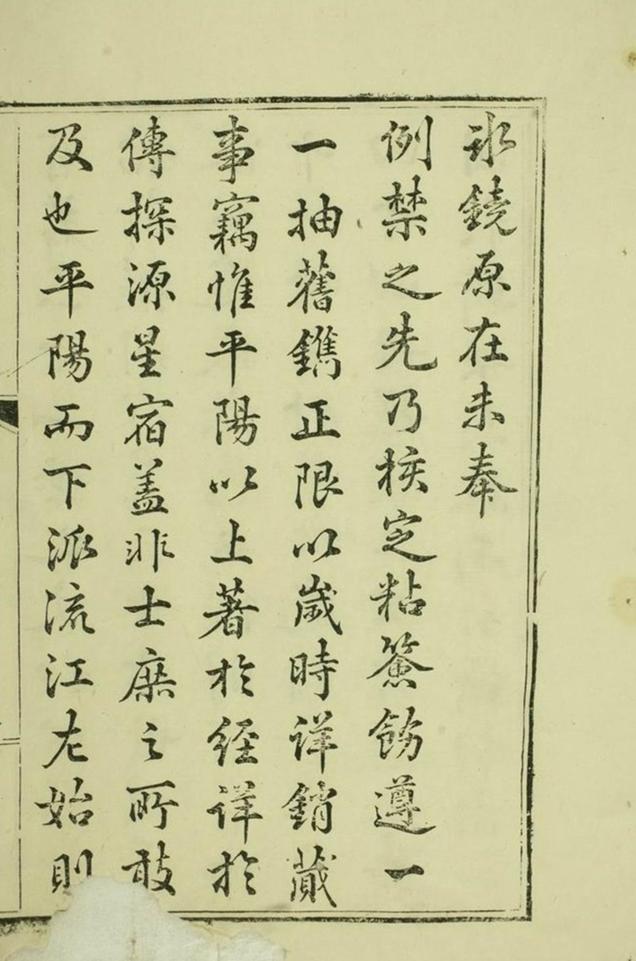 鐃原在未奉
例禁之先乃核定粘簽飭遵一
一抽舊鐫正限以歲時詳銷蕆
事竊惟平陽以上著於經詳於
傳探源星宿盖非士庶之所敢
及也平陽而下派流江左始則